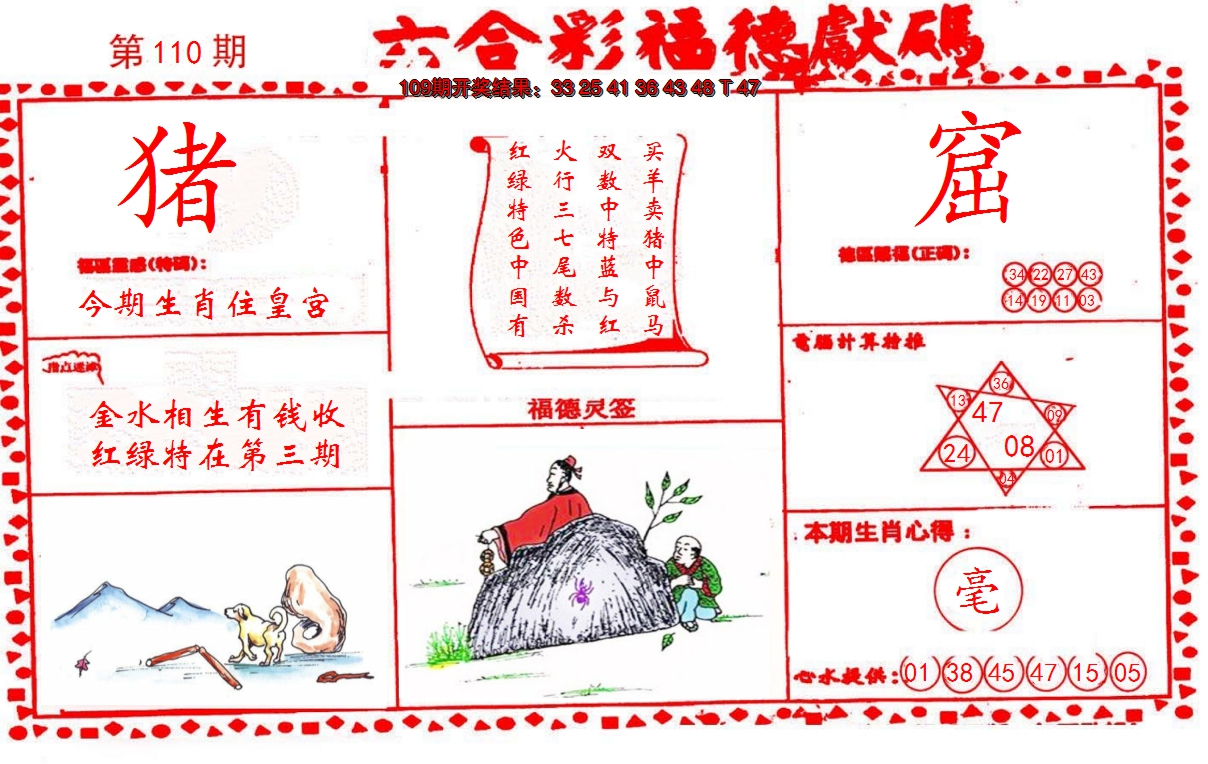 第110期
六合彩福德獻碼
109期开奖结果：33 25 41 36 43 48 T 47
猪
福區靈感(特碼)：
今期生肖住皇宫
指点迷津
金水相生有钱收
红绿特在第三期
买羊卖猪中鼠马
双数中特蓝与红
火行三七尾数杀
红绿特色中国有
福德灵签
窟
德區賜福(正碼)：
34 22 27 43
14 19 11 03
電腦计算抢推
36
13 47 09
24 08 01
04
本期生肖心得：
毫
心水提供：01 38 45 47 15 05